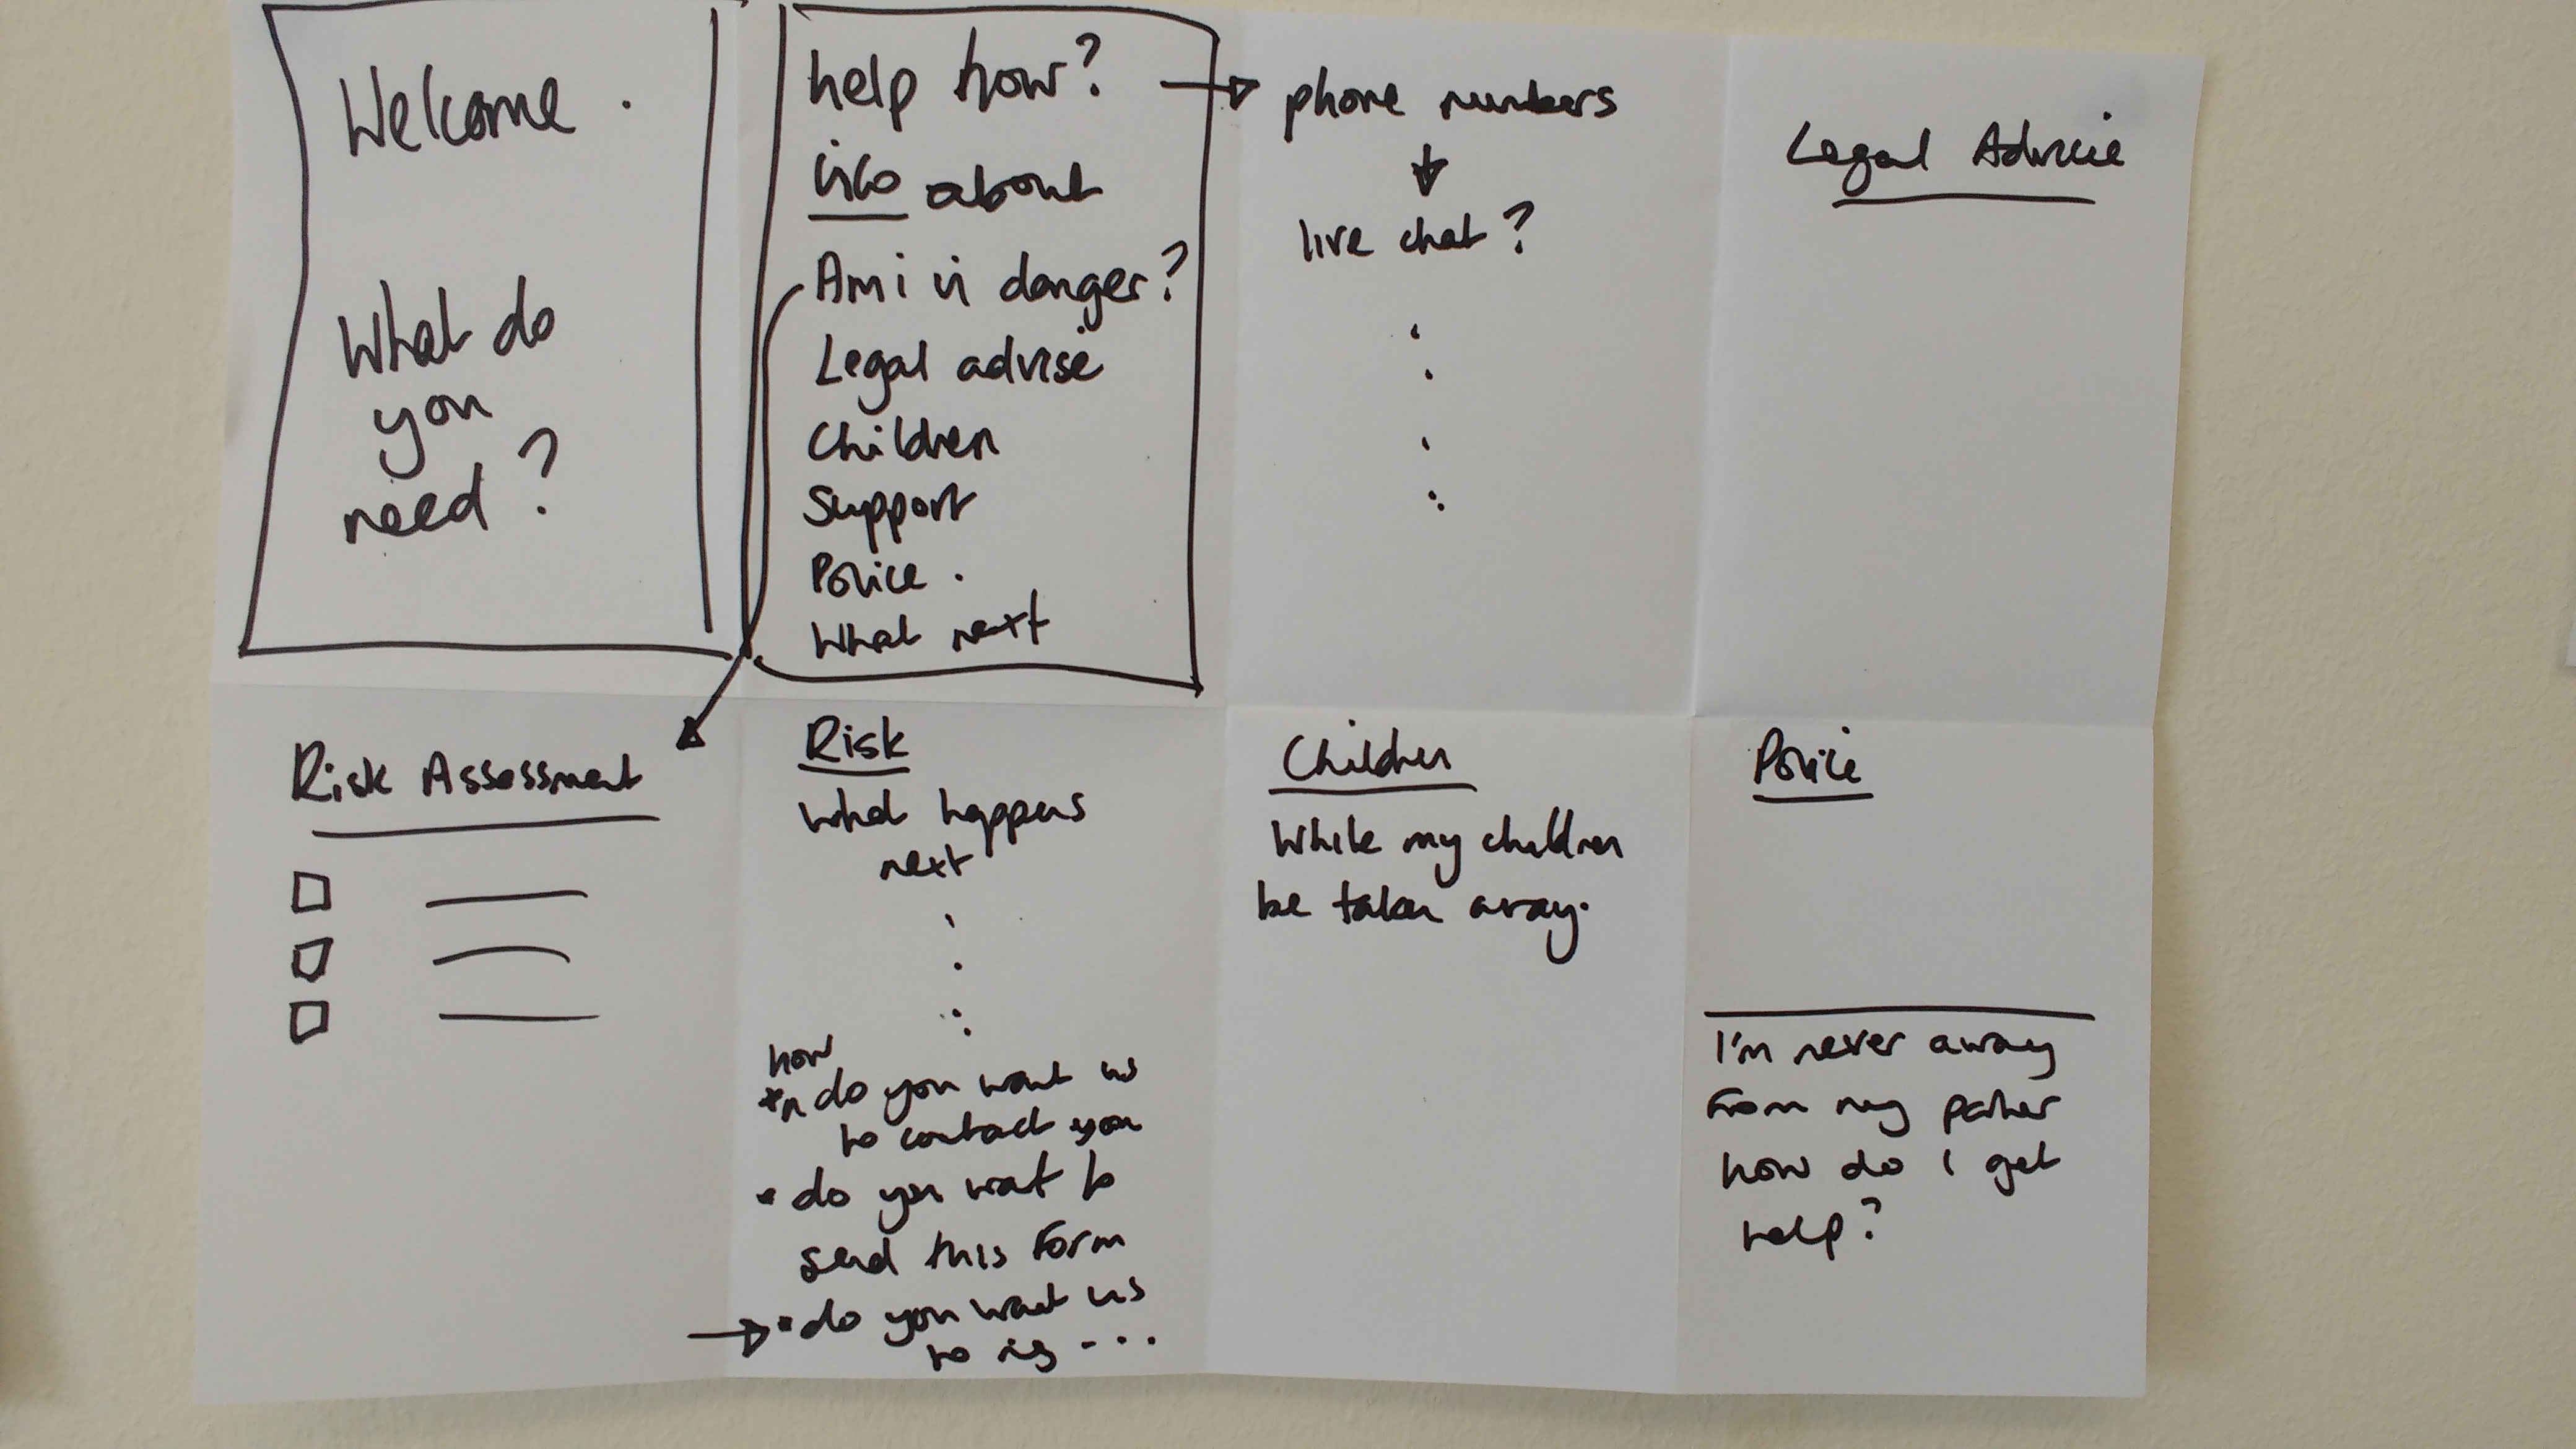 Welcome.
What do
you
need?
help how?
info about
Am i in danger?
Legal advise
Children
Support
Police.
What next
phone numbers
live chat?
Legal Advicie
Risk Assessment
Risk
What happens
next
how
do you want us
to contact you
• do you wat to
send this form
• do you want us
to rig - . . .
Children
While my children
be taken away.
Police
I'm never away
from my parner
how do I get
help?